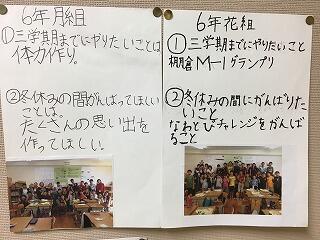 6年月組
①三学期までにやりたいことは
体力作り。
②冬休みの間がんばってほしい
ことは、
たくさんの思い出を
作ってほしい。
6年花組
①三学期までにやりたいこと
棚倉M-1グランプリ
②冬休みの間にがんばりた
いこと
なわとびチャレンジをがんば
ること